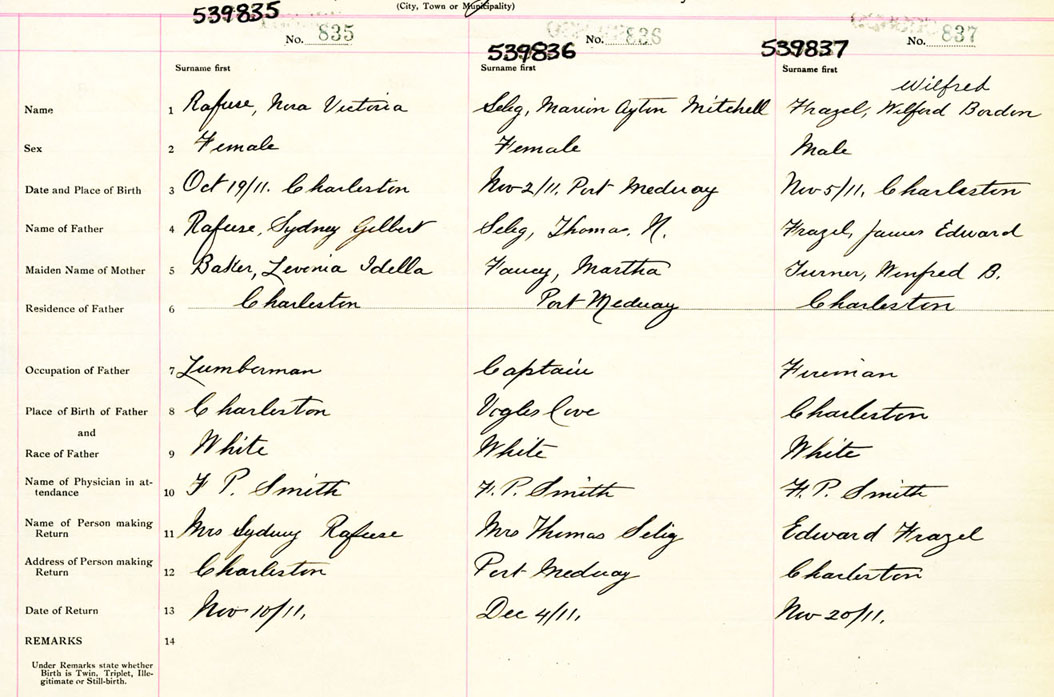 (City, Town or Municipality)
539835 No. 835
539836 No. 836
539837 No. 837
Surname first Surname first Surname first
Wilfred
Name 1 Rafuse, Nora Victoria Selig, Marion Ayton Mitchell Frazel, Wilford Bordon
Sex 2 Female Female Male
Date and Place of Birth 3 Oct 19/11. Charleston Nov 2/11, Port Medway Nov 5/11, Charleston
Name of Father 4 Rafuse, Sydney Gilbert Selig, Thomas. N. Frazel, James Edward
Maiden Name of Mother 5 Baker, Levenia Idella Fancy, Martha Turner, Winfred B.
Residence of Father 6 Charleston Port Medway Charleston
Occupation of Father 7 Lumberman Captain Fireman
Place of Birth of Father 8 Charleston Vogles Cove Charleston
and
Race of Father 9 White White White
Name of Physician in at-
tendance 10 F P. Smith F. P. Smith F. P. Smith
Name of Person making
Return 11 Mrs Sydney Rafuse Mrs Thomas Selig Edward Frazel
Address of Person making
Return 12 Charleston Port Medway Charleston
Date of Return 13 Nov 10/11, Dec 4/11, Nov 20/11,
REMARKS 14
Under Remarks state whether
Birth is Twin, Triplet, Ille-
gitimate or Still-birth.